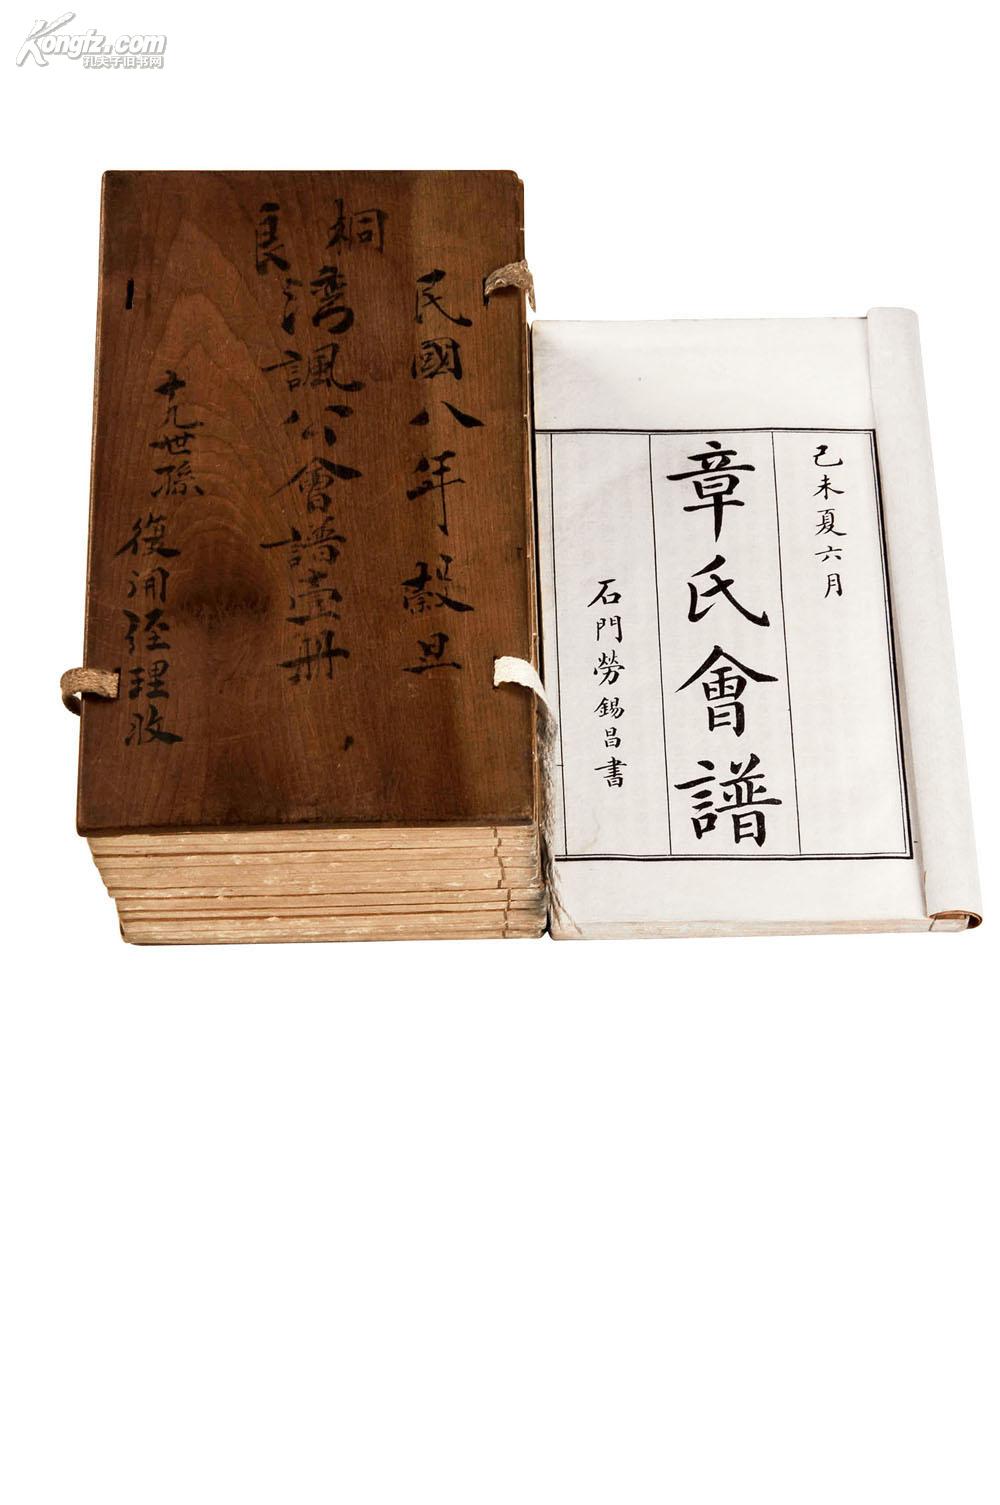 Kongfz.com
孔夫子旧书网
民國八年穀旦
桐
良
湾諷公會譜壹册
十九世孫
復開經理收
己未夏六月
章氏會譜
石門勞錫昌書